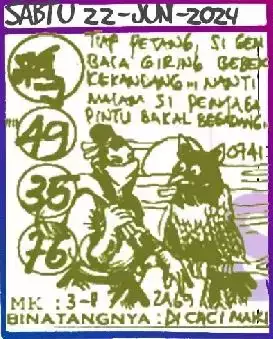 SABTU 22-JUN-2024
TIAP PETANG, SI GEM
BACA GIRING BEBEK
KEKANDANG ... NANTI
MALAM SI PENJAGA
PINTU BAKAL BEGADANG.
0941
49
35
76
MK : 3-
BINATANGNYA : DI CACI MAKI